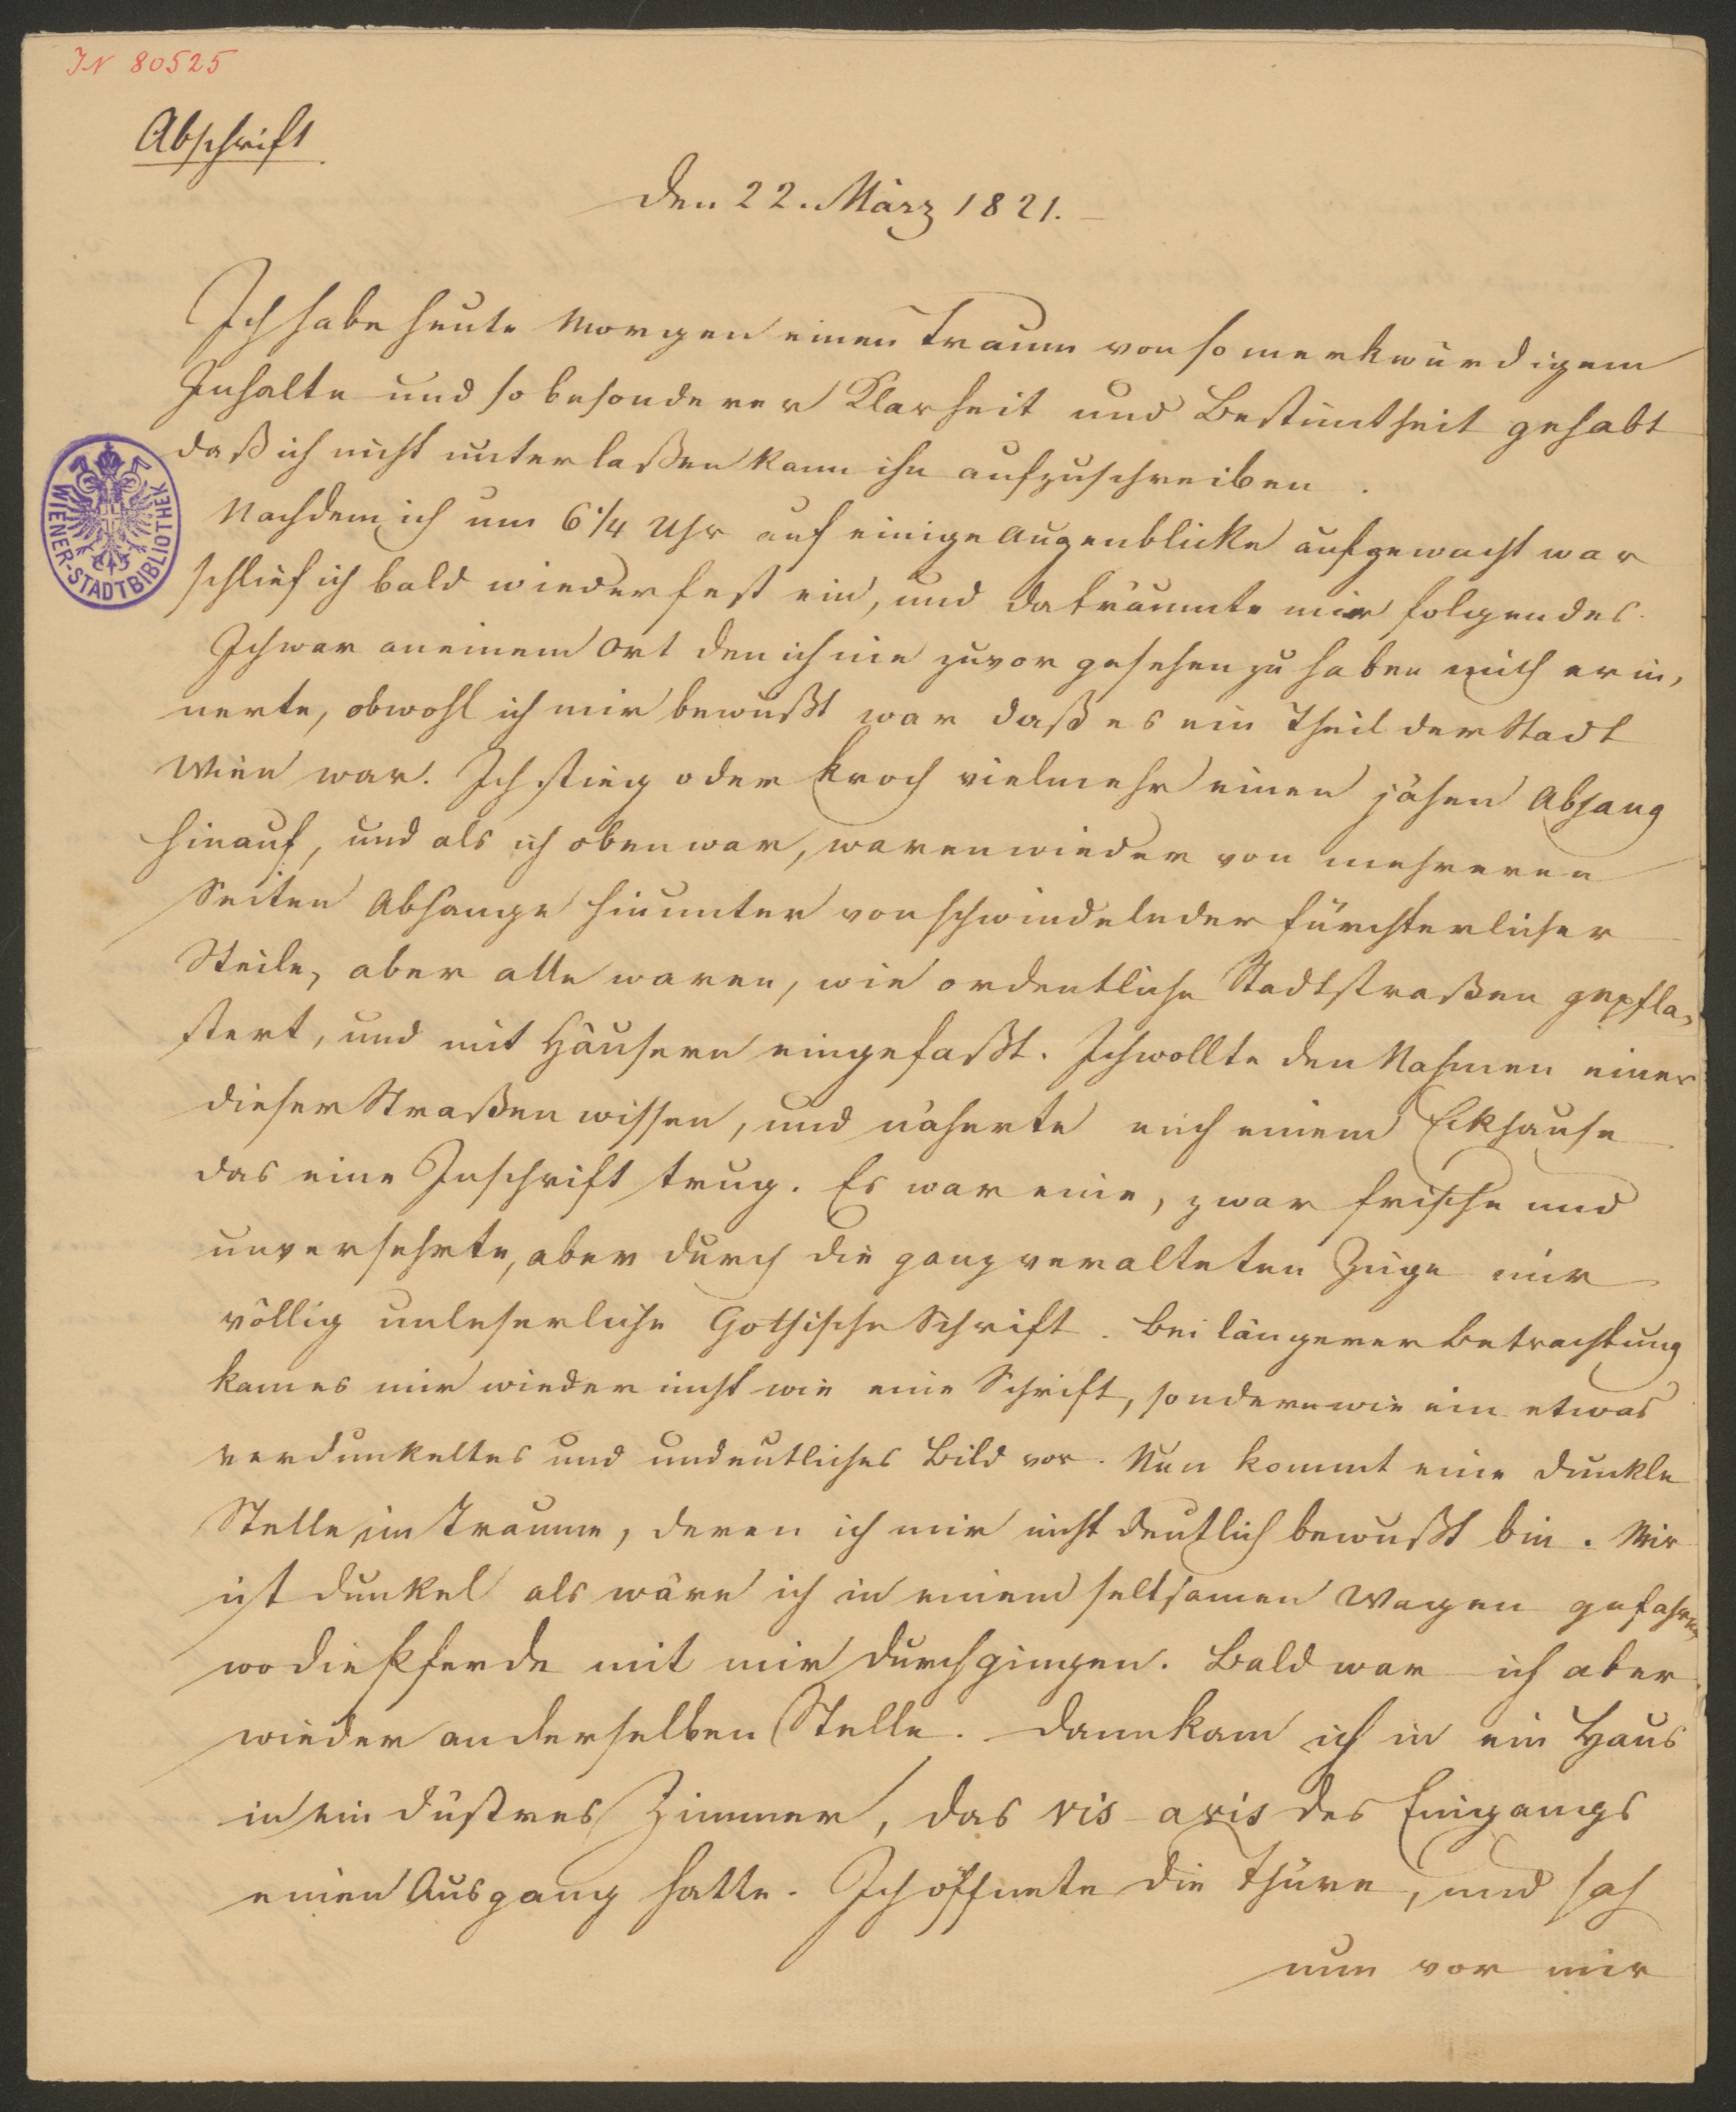 IN 80525
Abschrift
Den 22. März 1821.
Ich habe heute Morgen einen Traum von so merkwürdigem
Inhalte und so besonderer Klarheit und Bestimtheit gehabt
daß ich nicht unterlaßen kann ihn aufzuschreiben.
Nachdem ich um 6 1/4 Uhr auf einige Augenblicke aufgewacht war
schlief ich bald wieder fest ein, und da träumte mir folgendes.
Ich war an einem Ort den ich nie zuvor gesehen zu haben mich erin,
nerte, obwohl ich mir bewußt war daß es ein Theil der Stadt
Wien war. Ich stieg oder kroch vielmehr einen jähen Abhang
hinauf, und als ich oben war, waren wieder von mehreren
Seiten Abhange hinunter von schwindelnder fürchterlicher
Steile, aber alle waren, wie ordentliche Stadtstraßen gepfla,
stert, und mit Häusern eingefaßt. Ich wollte den Nahmen einer
dieser Straßen wissen, und näherte mich einem Eckhause
das eine Inschrift trug. Es war eine, zwar frische und
unversehrte, aber durch die ganz veralteten Züge mir
völlig unleserliche Gothische Schrift. Bei längerer Betrachtung
kam es mir wieder nicht wie eine Schrift, sondern wie ein etwas
verdunkeltes und undeutliches Bild vor. Nun kommt eine dunkle
Stelle im Traume, deren ich mir nicht deutlich bewußt bin. Mir
ist dunkel als wäre ich in einem seltsamen Wagen gefahren
wo die Pferde mit mir durchgingen. Bald war ich aber
wieder an derselben Stelle. Dann kam ich in ein Haus
in ein dustres Zimmer, das vis-avis des Eingangs
einen Ausgang hatte. Ich öffnete die Thüre, und sah
nun vor mir
WIENER-STADTBIBLIOTHEK